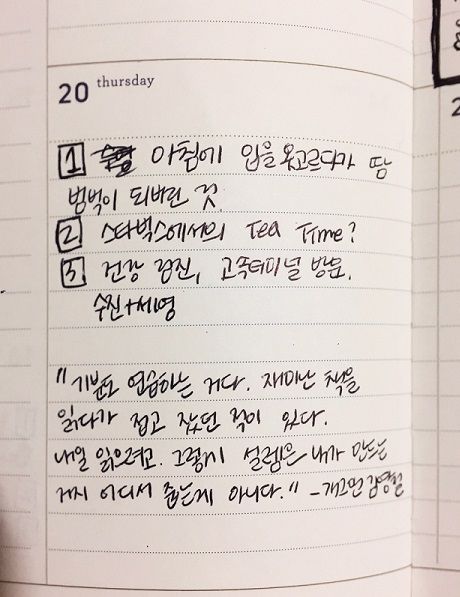 20 thursday
1 아침에 입을 옷고르다가 땀
범벅이 되버린 것.
2 스타벅스에서의 Tea Time?
3 건강 검진, 고속터미널 방문.
수진+세영
"기분도 연습하는 거다. 재미난 책을
읽다가 접고 잤던 적이 있다.
내일 읽으려고. 그렇게 설렘은 내가 만드는
거지 어디서 줍는게 아니다." -개그맨 김영철